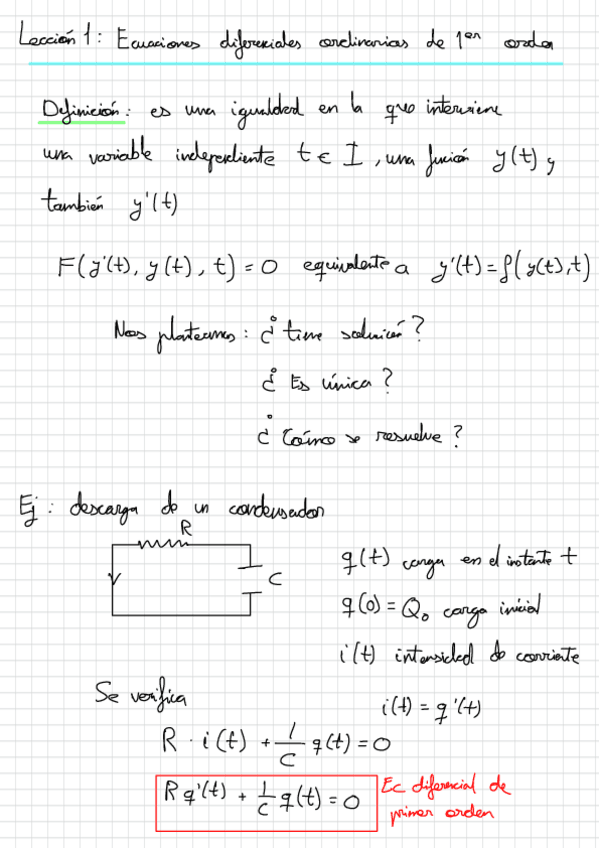 Lección 1: Ecuaciones diferenciales ordinarias de 1er orden
Definición: es una igualdad en la que interviene
una variable independiente t ∈ I, una función y(t) y
también y'(t)
F(y'(t), y(t), t) = 0 equivalente a y'(t) = f(y(t), t)
Nos planteamos: ¿tiene solución?
¿Es única?
¿Cómo se resuelve?
Ej: descarga de un condensador
R
C
q(t) carga en el instante t
q(0) = Q₀ carga inicial
i(t) intensidad de corriente
i(t) = q'(t)
Se verifica
R · i(t) + 1/C q(t) = 0
R q'(t) + 1/C q(t) = 0
Ec diferencial de
primer orden